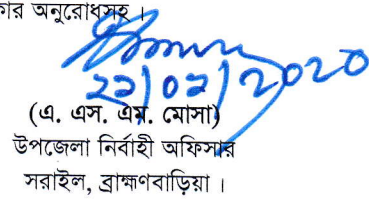 কার অনুরোধসহ।
২২/০২/২0২0
(এ. এস. এম. মোসা)
উপজেলা নির্বাহী অফিসার
সরাইল, ব্রাহ্মণবাড়িয়া।